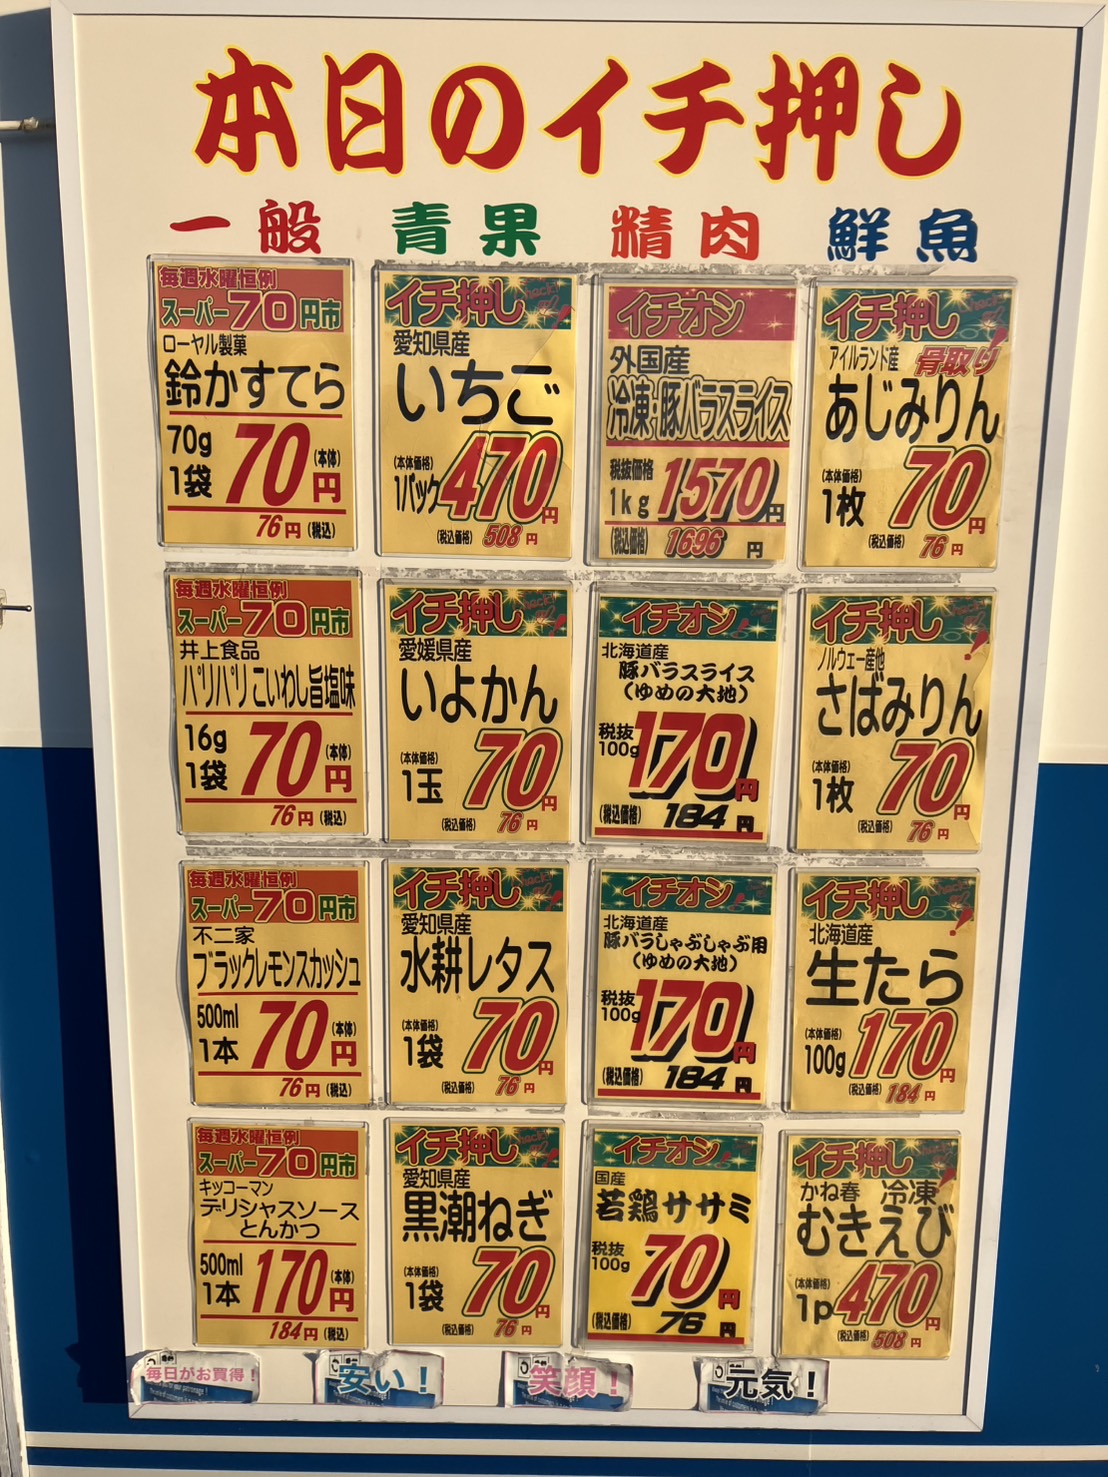 本日のイチ押し
一般 青果 精肉 鮮魚
毎週水曜恒例
スーパー70円市
ローヤル製菓
鈴かすてら
70g
1袋
70円(本体)
76円(税込)
イチ押し
愛知県産
いちご
(本体価格)
1パック
470円
(税込価格) 508円
イチオシ
外国産
冷凍・豚バラスライス
税抜価格
1kg
1570円
(税込価格) 1696円
イチ押し
アイルランド産 骨取り
あじみりん
(本体価格)
1枚
70円
(税込価格) 76円
毎週水曜恒例
スーパー70円市
井上食品
パリパリこいわし旨塩味
16g
1袋
70円(本体)
76円(税込)
イチ押し
愛媛県産
いよかん
(本体価格)
1玉
70円
(税込価格) 76円
イチオシ
北海道産
豚バラスライス
(ゆめの大地)
税抜
100g
170円
(税込価格) 184円
イチ押し
ノルウェー産他
さばみりん
(本体価格)
1枚
70円
(税込価格) 76円
毎週水曜恒例
スーパー70円市
不二家
ブラックレモンスカッシュ
500ml
1本
70円(本体)
76円(税込)
イチ押し
愛知県産
水耕レタス
(本体価格)
1袋
70円
(税込価格) 76円
イチオシ
北海道産
豚バラしゃぶしゃぶ用
(ゆめの大地)
税抜
100g
170円
(税込価格) 184円
イチ押し
北海道産
生たら
(本体価格)
100g
170円
(税込価格) 184円
毎週水曜恒例
スーパー70円市
キッコーマン
デリシャスソース
とんかつ
500ml
1本
170円(本体)
184円(税込)
イチ押し
愛知県産
黒潮ねぎ
(本体価格)
1袋
70円
(税込価格) 76円
イチオシ
国産
若鶏ササミ
税抜
100g
70円
(税込価格) 76円
イチ押し
かね春 冷凍
むきえび
(本体価格)
1p
470円
(税込価格) 508円
毎日がお買得! 安い! 笑顔! 元気!